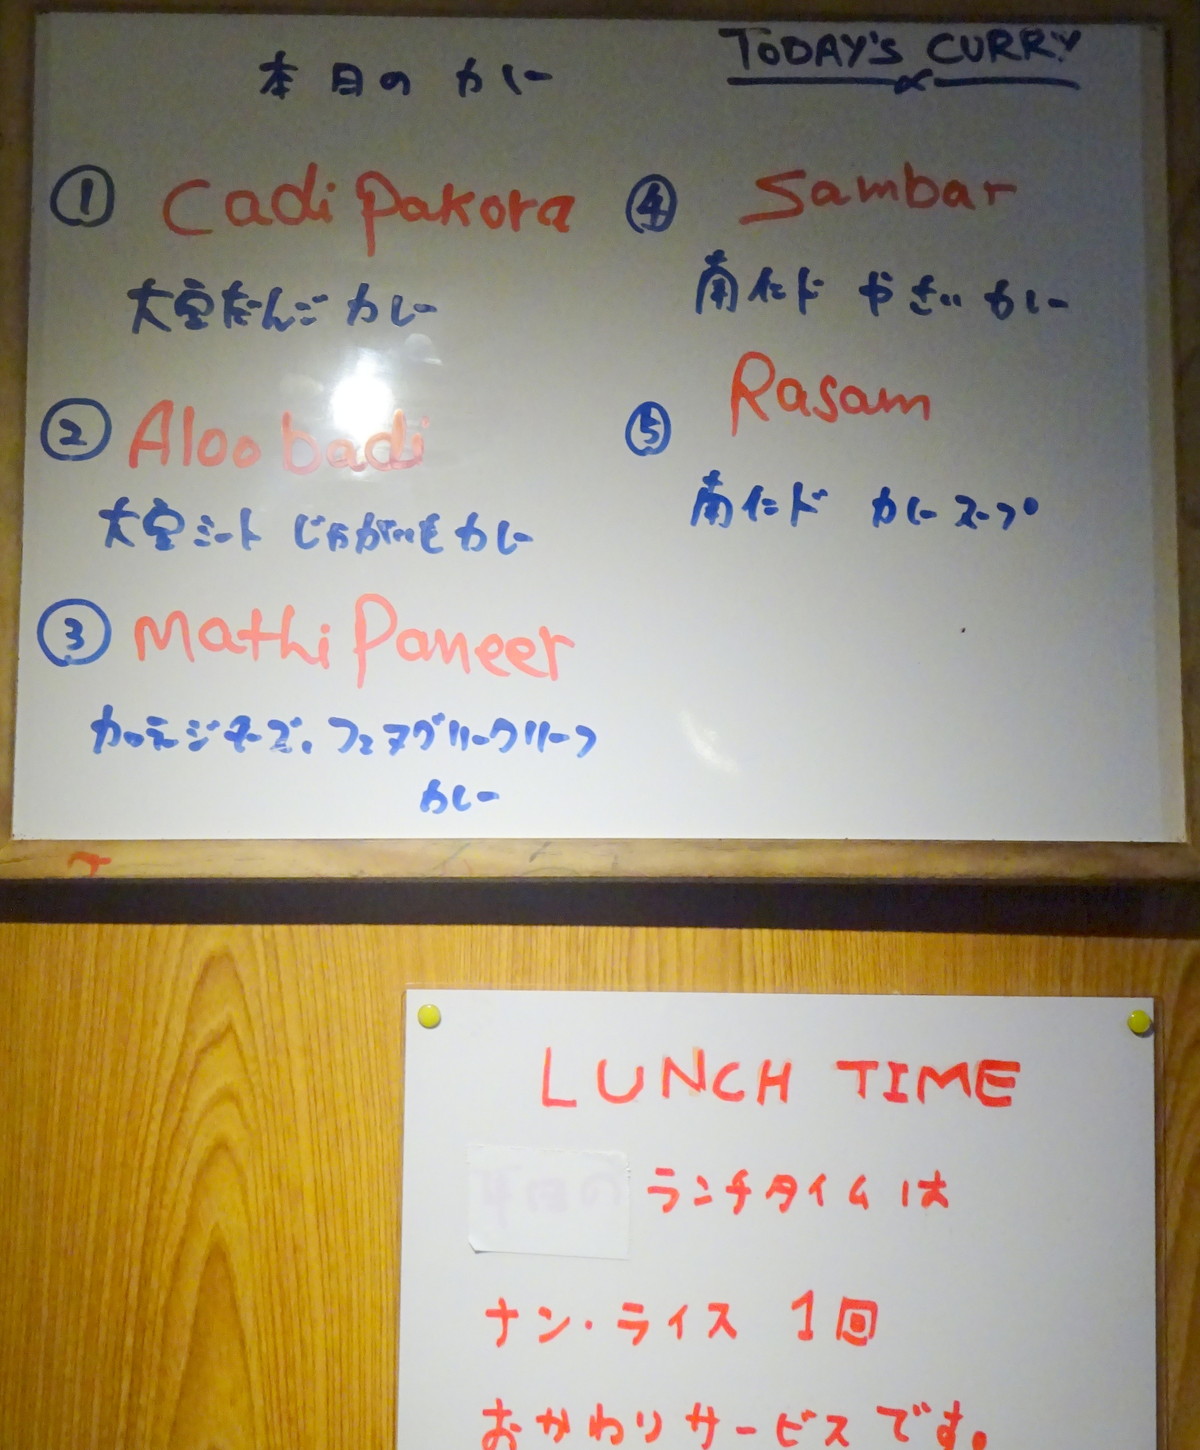 本日の カレー
TODAY'S CURRY
① Cadi Pakora
大豆だんご カレー
② Aloo badi
大豆ミート じゃがいも カレー
③ Mathi Paneer
カッテジチーズ、フェヌグリークリーフ
カレー
④ Sambar
南インド やさい カレー
⑤ Rasam
南インド カレースープ
LUNCH TIME
ランチタイムは
ナン・ライス 1回
おかわりサービスです。